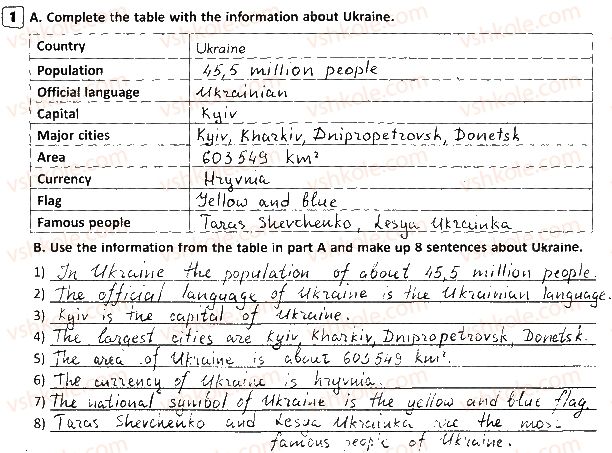 1 A. Complete the table with the information about Ukraine.
Country Ukraine
Population 45,5 million people
Official language Ukrainian
Capital Kyiv
Major cities Kyiv, Kharkiv, Dnipropetrovsk, Donetsk
Area 603 549 km²
Currency Hryvnia
Flag Yellow and blue
Famous people Taras Shevchenko, Lesya Ukrainka
B. Use the information from the table in part A and make up 8 sentences about Ukraine.
1) In Ukraine the population of about 45,5 million people.
2) The official language of Ukraine is the Ukrainian language.
3) Kyiv is the capital of Ukraine.
4) The largest cities are Kyiv, Kharkiv, Dnipropetrovsk, Donetsk.
5) The area of Ukraine is about 603 549 km².
6) The currency of Ukraine is hryvnia.
7) The national symbol of Ukraine is the yellow and blue flag.
8) Taras Shevchenko and Lesya Ukrainka are the most
famous people of Ukraine.